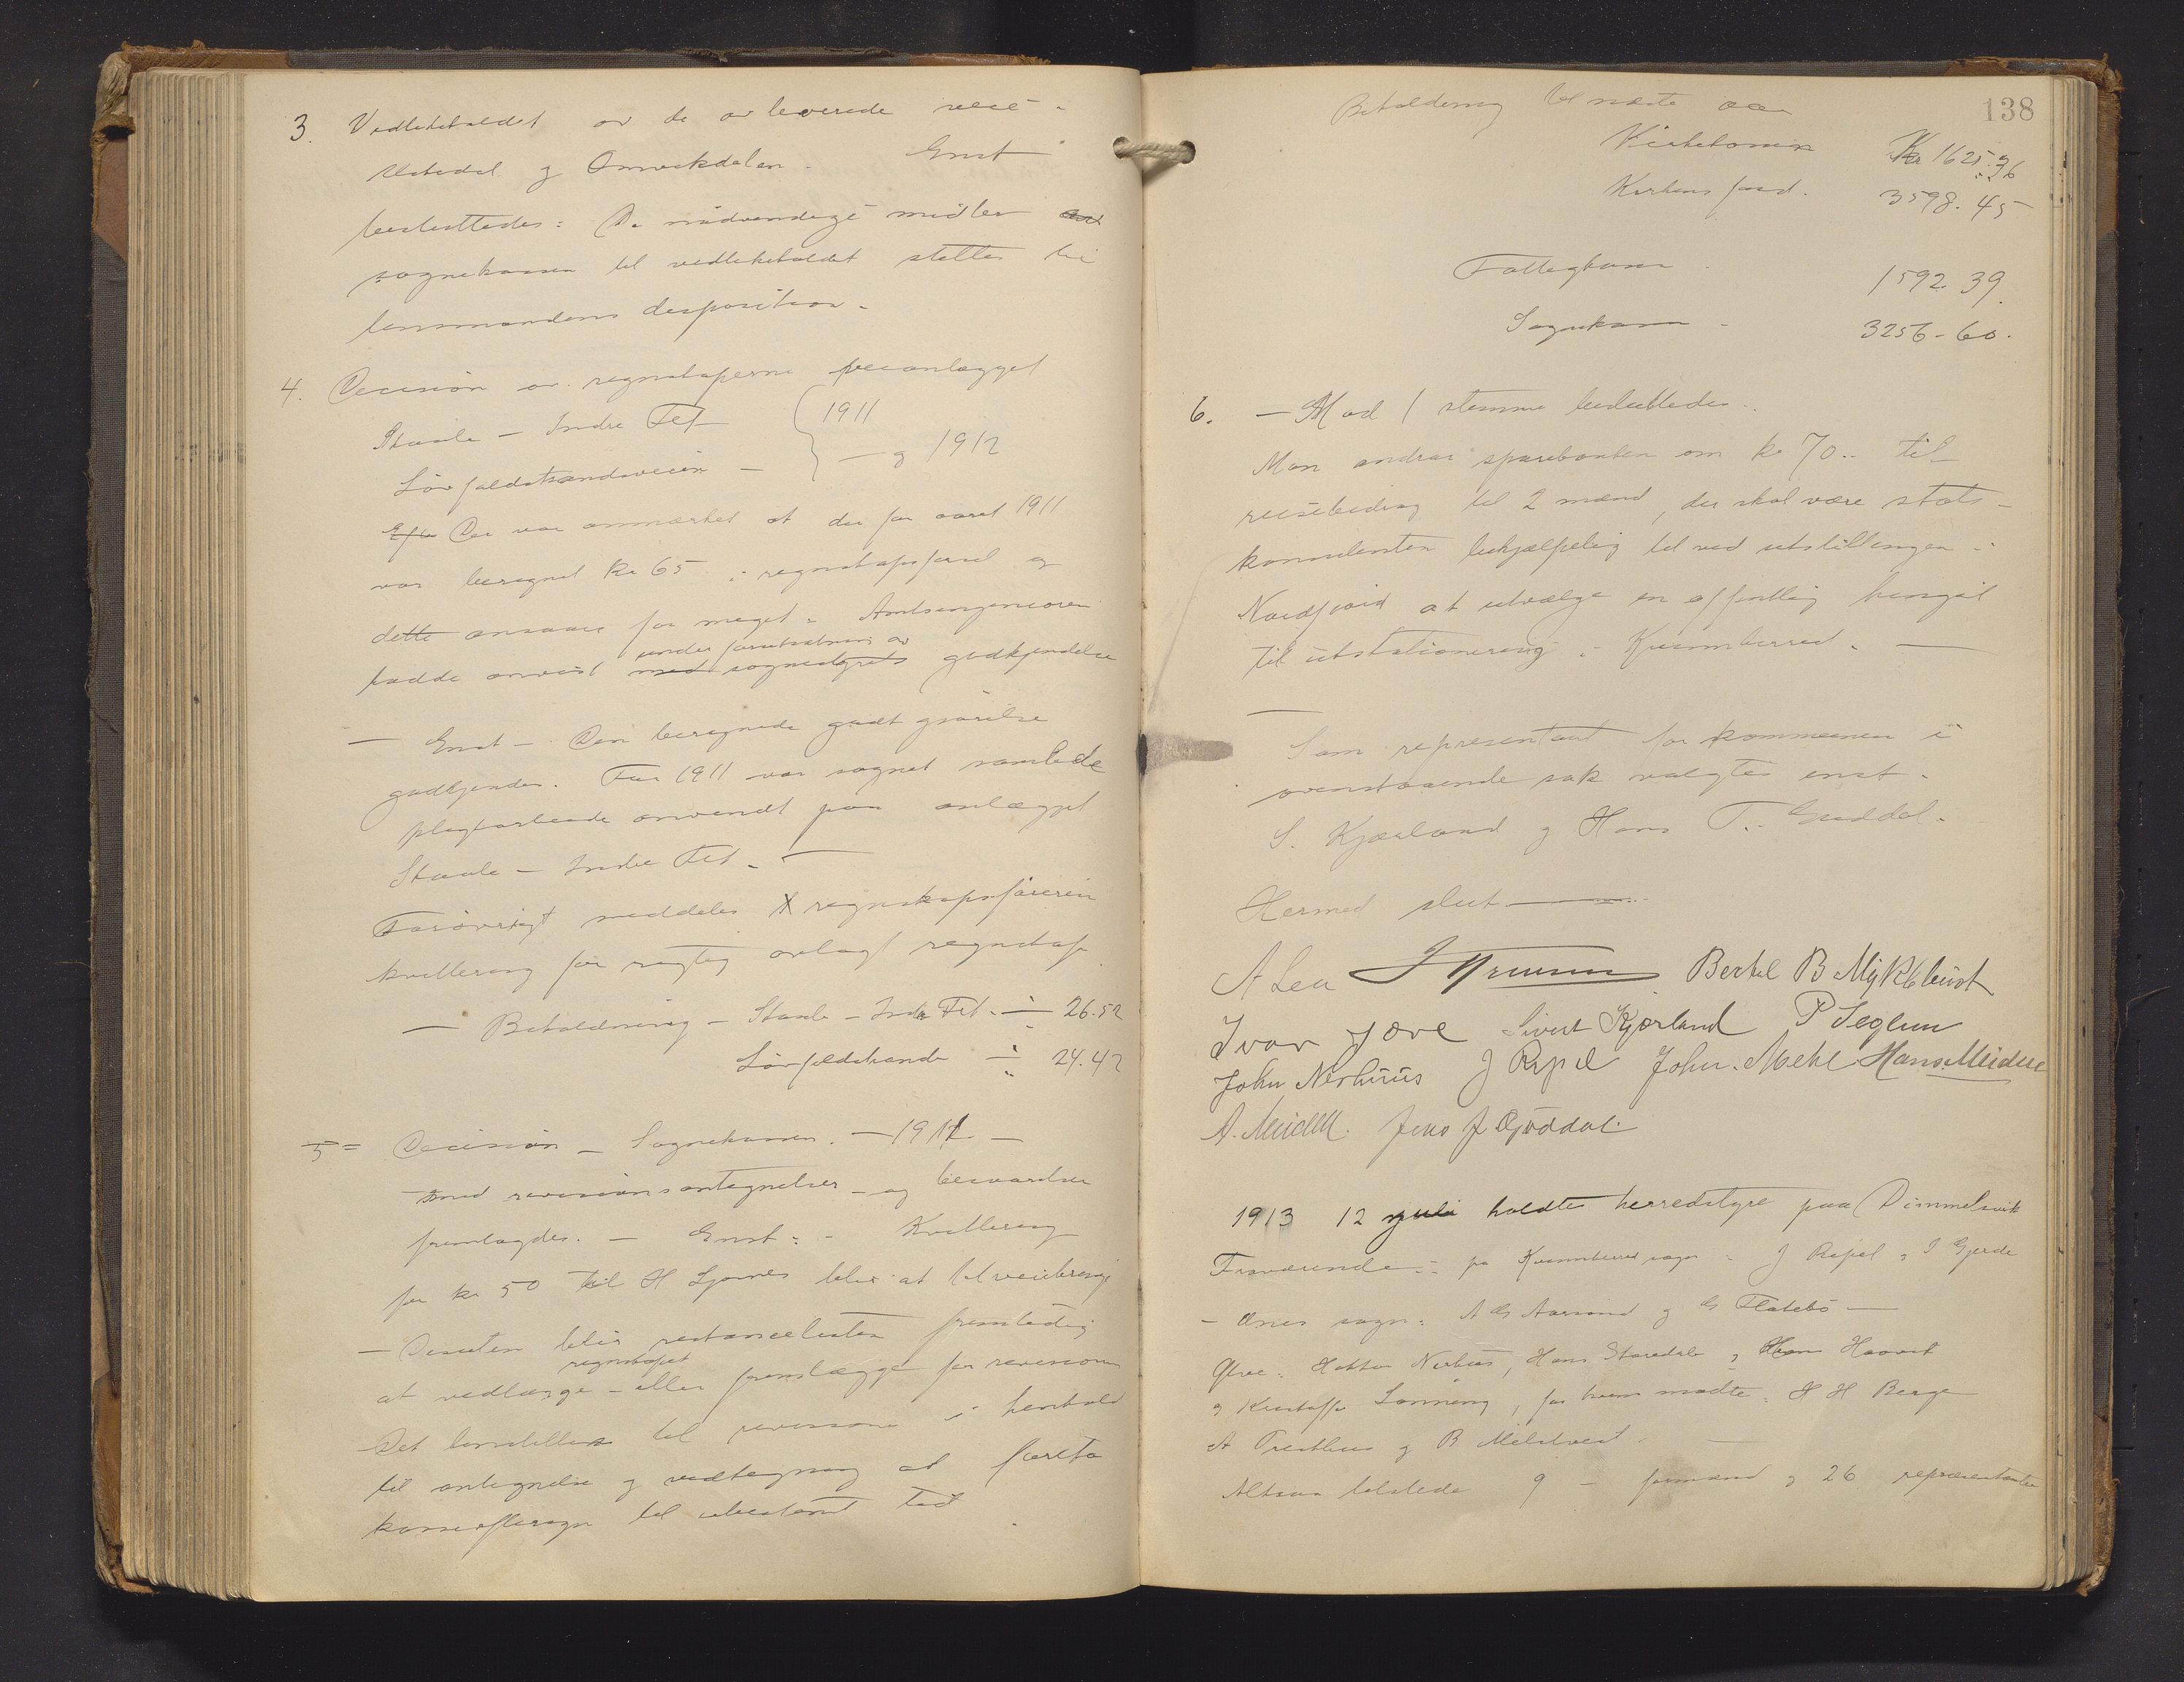 3. Vedlikeholdet av de avleverede veie i
Uskedal og Omvikdalen. Enst
besluttedes: De nødvendige midler av
sognekassen til vedlikeholdet stilles til
lensmandens disposition.
4. Decision av regnskaperne veianlægget
Staale – Indre Fet 1911
Løvfaldstrandsveien – – og 1912
Efte Der var anmærket at der for aaret 1911
var beregnet kr 65 i regnskapsførsel og
dette ansaaes for meget. Amtsingeniøren
under forutsætning av
hadde anvist med sognestyrets godkjendelse
– Enst – Den beregnede godtgjørelse
godkjendes. For 1911 var sognets samlede
pligtarbeide anvendt paa anlægget
Staale – Indre Fet. –
Forøvrigt meddeles regnskapsføreren
kvittering for rigtig avlagt regnskap
– Beholdning – Staale – Indre Fet. ÷ 26.52
Løvfaldstrande ÷ 24.42
5 = Decision – Sognekassen. – 1911 –
med revisionsantegnelser – og besvarelser
fremlagdes. – Enst: – Kvittering
for kr 50 til H Ljones blir at tilveiebringe
– Desuten blir restancelisten fremtidig
regnskapet
at vedlægge – eller fremlægge for revisionen
Det henstilles til revisorene i henhold
til antegnelse og vedtagning at foreta
kasseeftersyn til ubestemt tid.
138
Beholdning til næste aar
Kirkekassen Kr 1625.36
Kirkens fond. 3598.45
Fattigkassen 1592.39
Sognekassen – 3256-60.
6. – Mod 1 stemme besluttedes.
Man andrar sparebanken om kr 70.. til
reisebidrag til 2 mænd, der skal være stats-
konsulenten behjælpelig til ved utstillingen i
Nordfjord at utvælge en offentlig hingst
til utstationering i Kvinnherred. –
Som representant for kommunen i
ovenstaaende sak valgtes enst.
S. Kjærland og Hans T. Guddal.
Hermed slut
A Lea Bertel B Myklebust
Ivar Jove Sivert Kjærland P Seglem
John Nerhuus J Røpel John. Mehl Hans Meidell
A. Meidell. Jens J Gjøddal.
1913 12 juli holdtes herredstyre paa Dimmelsvik
Fraværende: fra Kvinnherred sogn: J Røpel, I Gjerde
– Ænes sogn: A G Aarsand og G Flatebø –
Ølve: Haktor Nerhus, Hans Staredale og Hans Haavik
og Kristoffer Lønning, for hvem mødte: H H Berge
A Tresthus og B Mælstveit. –
Altsaa tilstede 9 – formænd og 26 repræsentanter